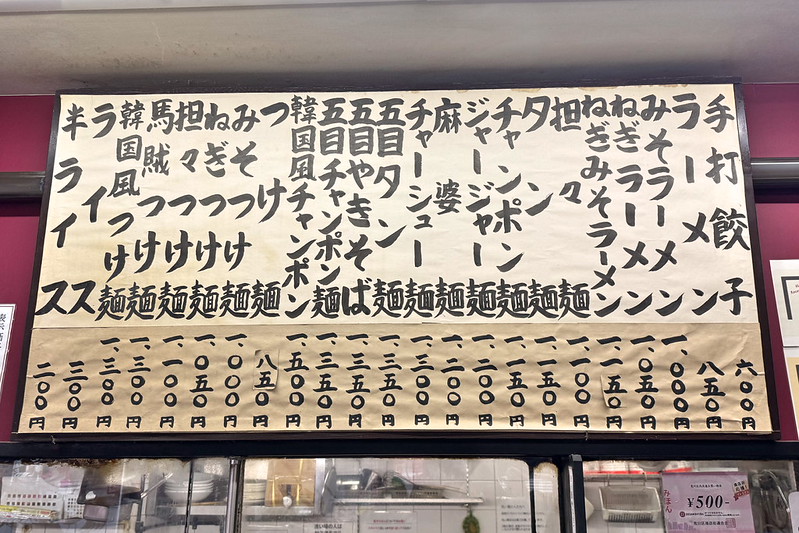 手打餃子 六〇〇円
ラーメン 八五〇円
みそラーメン 一、〇〇〇円
ねぎラーメン 一、〇五〇円
ねぎみそラーメン 一、一五〇円
担々麺 一、一〇〇円
タン麺 一、一五〇円
チャンポン麺 一、一五〇円
ジャージャー麺 一、二〇〇円
麻婆麺 一、二〇〇円
チャーシュー麺 一、三〇〇円
五目タン麺 一、三五〇円
五目やきそば 一、三五〇円
五目チャンポン麺 一、三五〇円
韓国風チャンポン 一、五〇〇円
つけ麺 八五〇円
みそつけ麺 一、〇〇〇円
ねぎつけ麺 一、〇五〇円
担々つけ麺 一、一〇〇円
馬賊つけ麺 一、三〇〇円
韓国風つけ麺 一、三〇〇円
ライス 三〇〇円
半ライス 二〇〇円
¥500-